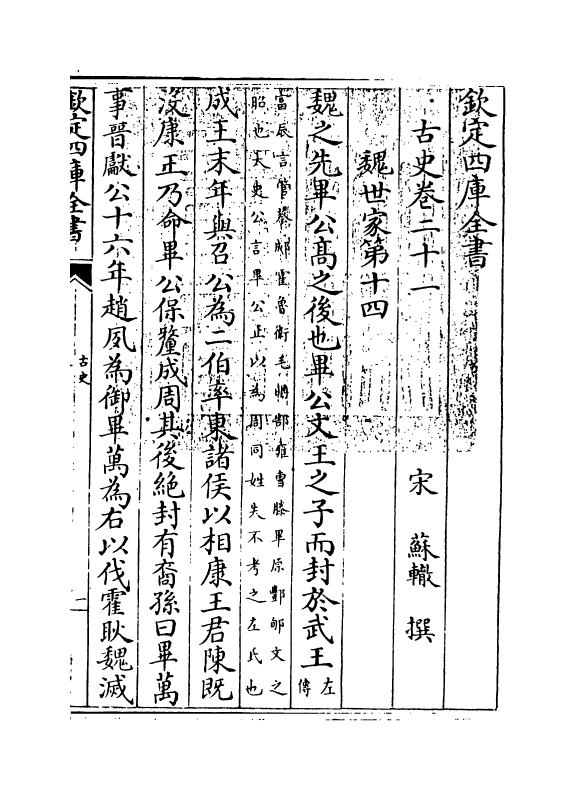 欽定四庫全書
古史卷二十一
宋 蘇轍 撰
魏世家第十四
魏之先畢公高之後也畢公文王之子而封於武王左傳
富辰言管蔡郕霍魯衛毛聃郜雍曹滕畢原酆郇文之
昭也太史公言畢公正以為周同姓失不考之左氏也
成王末年與召公為二伯率東諸侯以相康王君陳既
沒康王乃命畢公保釐成周其後絶封有裔孫曰畢萬
事晉獻公十六年趙夙為御畢萬為右以伐霍耿魏滅
欽定四庫全書
古史
一